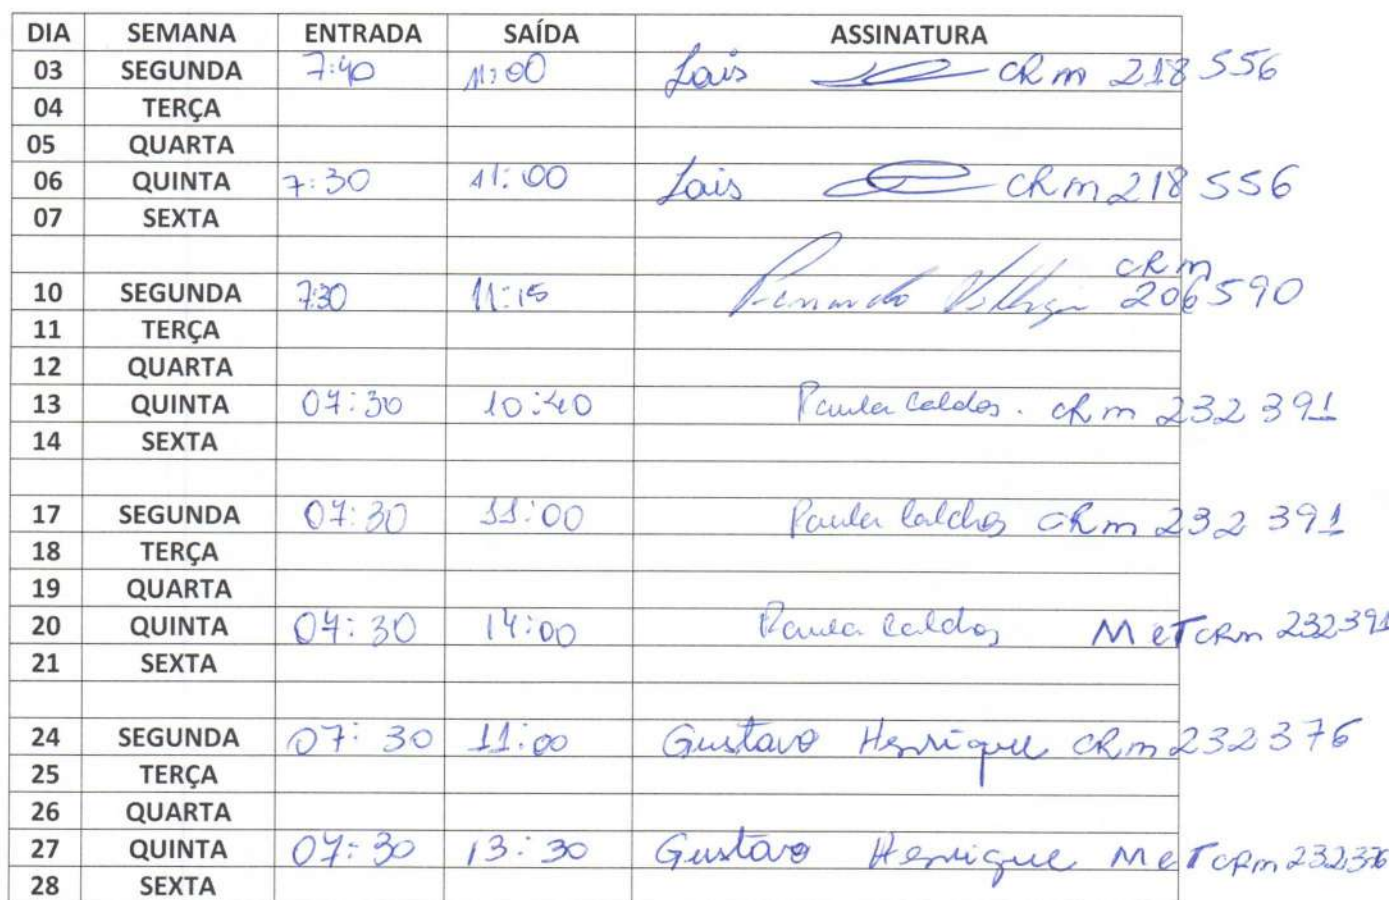 DIA SEMANA ENTRADA SAÍDA ASSINATURA
03 SEGUNDA 7:40 11:00 Lais CRM 218556
04 TERÇA
05 QUARTA
06 QUINTA 7:30 11:00 Lais CRM 218556
07 SEXTA
CRM
10 SEGUNDA 7:30 11:15 206590
11 TERÇA
12 QUARTA
13 QUINTA 07:30 10:40 Paula Caldas. CRM 232391
14 SEXTA
17 SEGUNDA 07:30 11:00 Paula Caldas CRM 232391
18 TERÇA
19 QUARTA
20 QUINTA 07:30 14:00 Paula Caldas MeT CRM 232391
21 SEXTA
24 SEGUNDA 07:30 11:00 Gustavo Henrique CRM 232376
25 TERÇA
26 QUARTA
27 QUINTA 07:30 13:30 Gustavo Henrique MeT CRM 232376
28 SEXTA